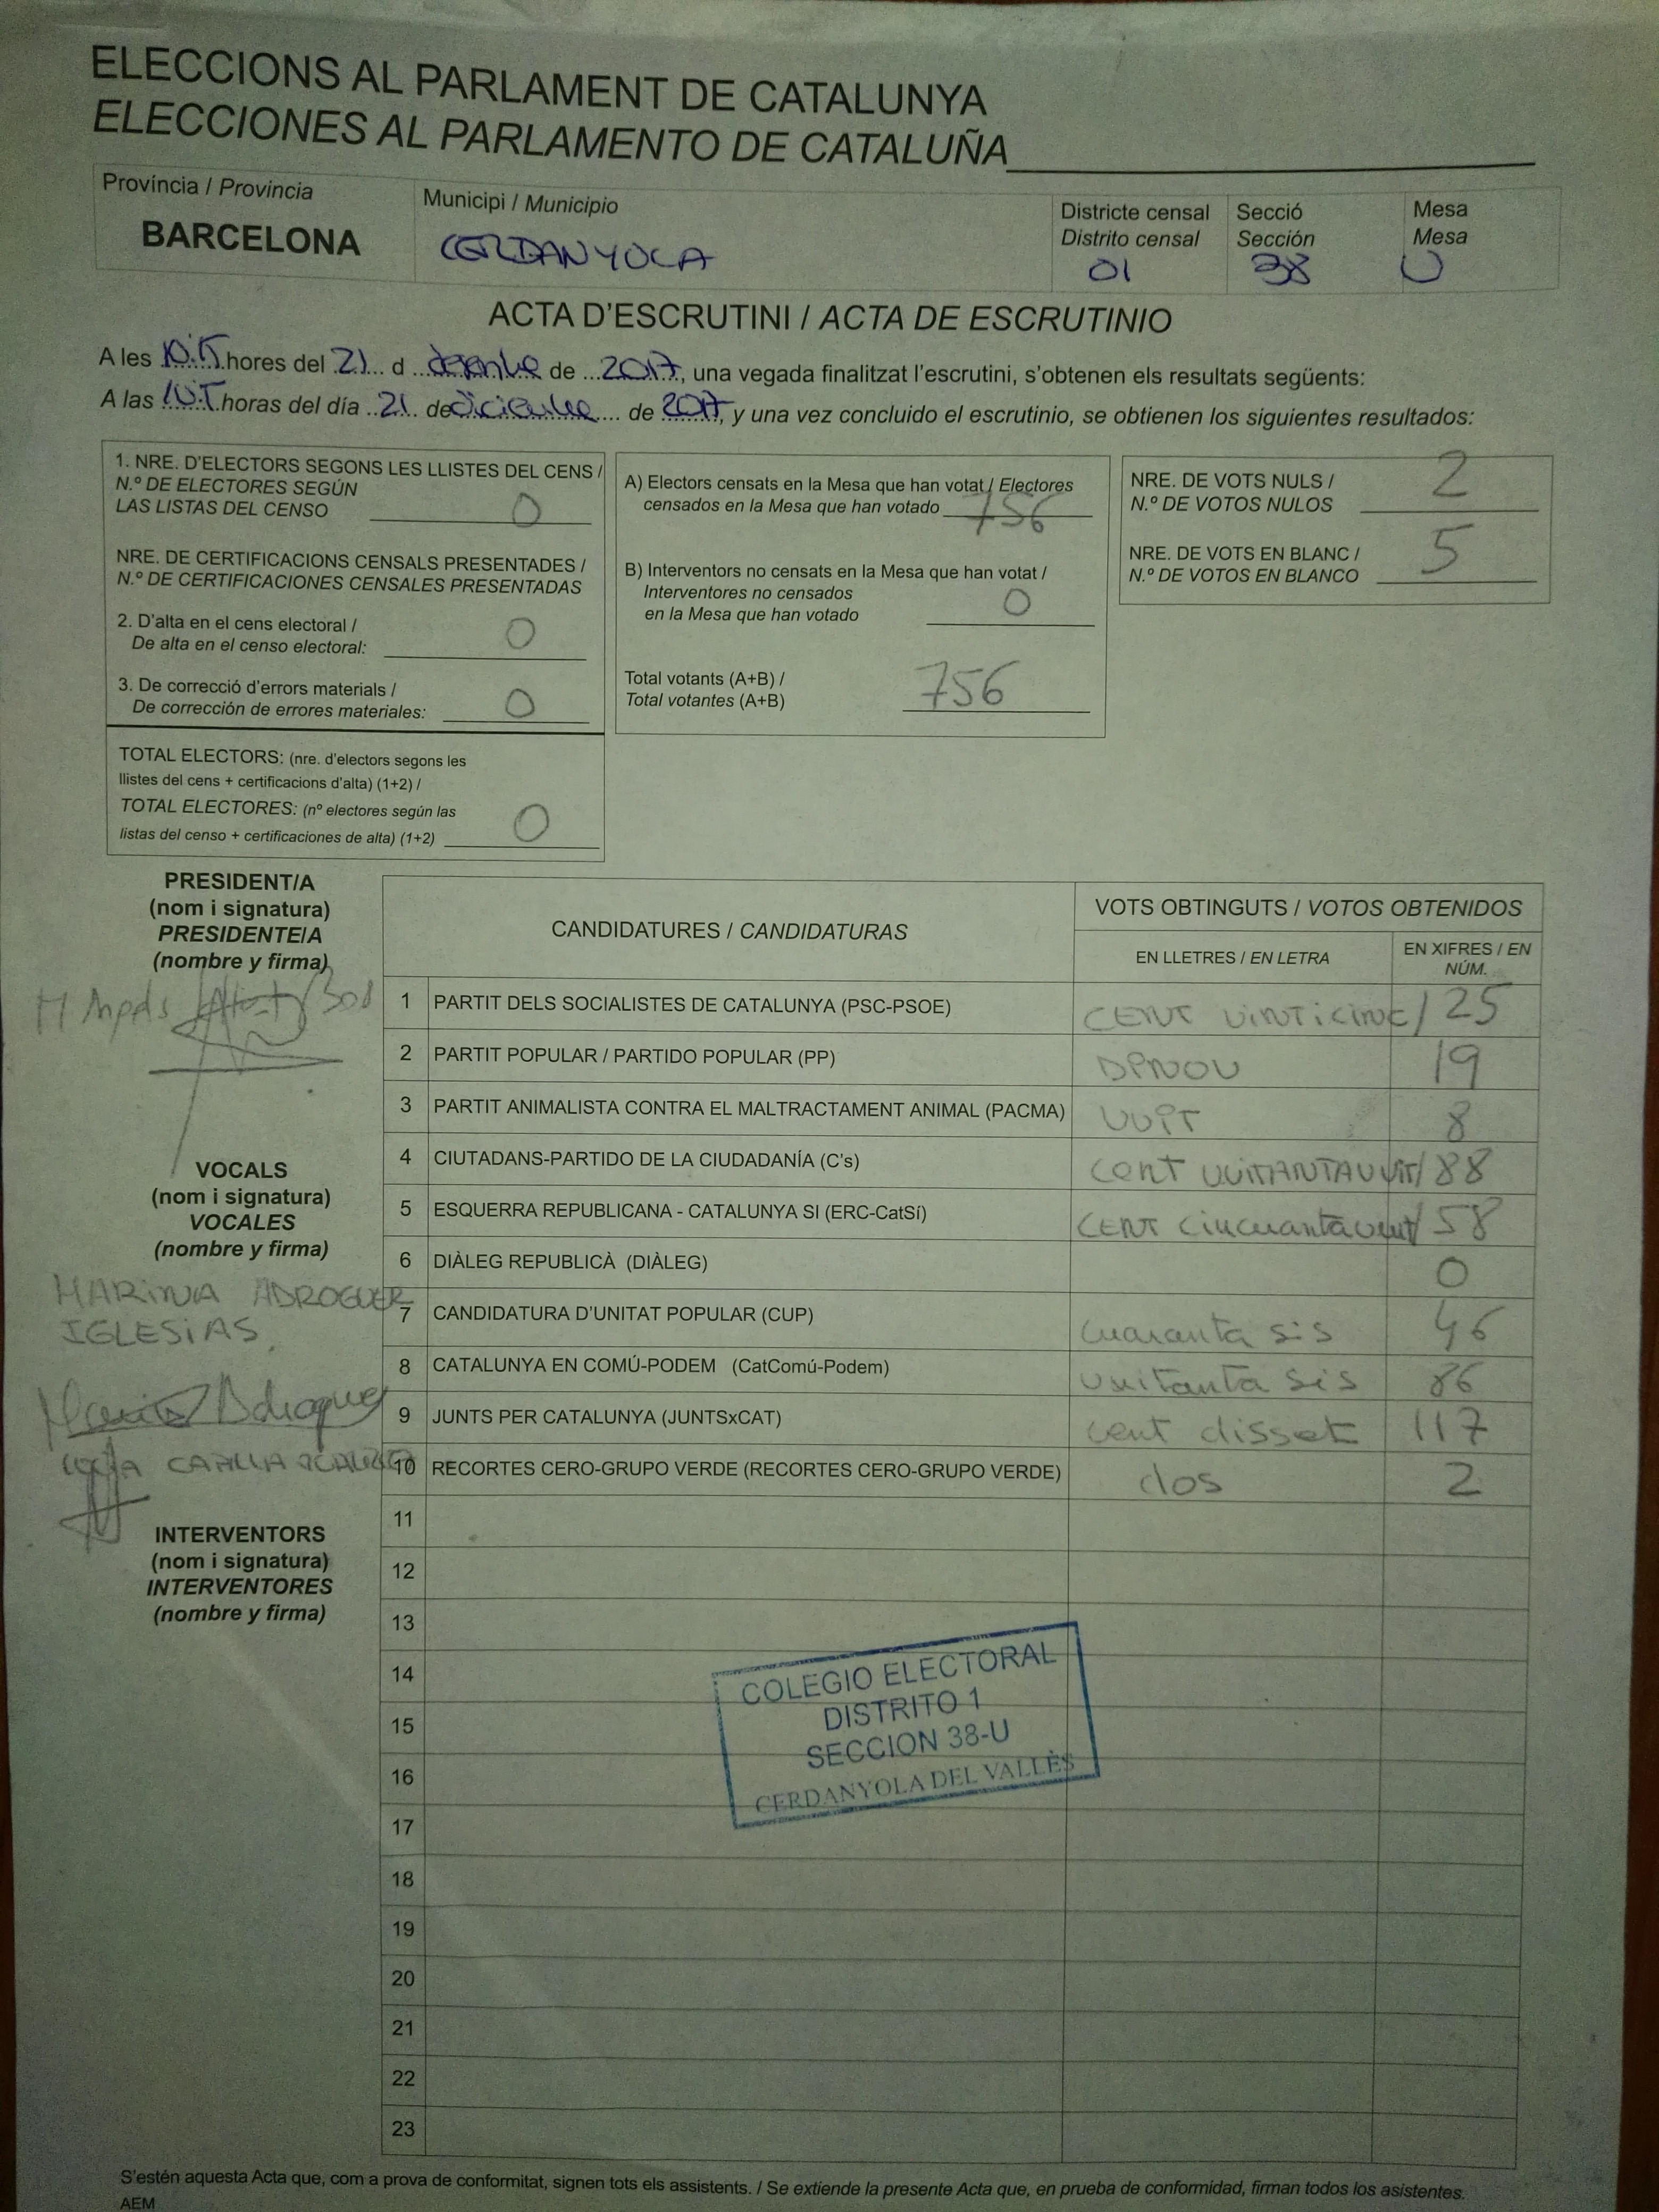 ELECCIONS AL PARLAMENT DE CATALUNYA
ELECCIONES AL PARLAMENTO DE CATALUÑA
Província / Provincia
BARCELONA
Municipi / Municipio
CERDANYOLA
Districte censal
Distrito censal
01
Secció
Sección
38
Mesa
Mesa
U
ACTA D'ESCRUTINI / ACTA DE ESCRUTINIO
A les 10:15 hores del 21 d desembre de 2017, una vegada finalitzat l'escrutini, s'obtenen els resultats següents:
A las horas del día 21 de diciembre de 2017, y una vez concluido el escrutinio, se obtienen los siguientes resultados:
1. NRE. D'ELECTORS SEGONS LES LLISTES DEL CENS /
N.º DE ELECTORES SEGÚN
LAS LISTAS DEL CENSO 0
NRE. DE CERTIFICACIONS CENSALS PRESENTADES /
N.º DE CERTIFICACIONES CENSALES PRESENTADAS
2. D'alta en el cens electoral /
De alta en el censo electoral: 0
3. De correcció d'errors materials /
De corrección de errores materiales: 0
TOTAL ELECTORS: (nre. d'electors segons les
llistes del cens + certificacions d'alta) (1+2) /
TOTAL ELECTORES: (nº electores según las
listas del censo + certificaciones de alta) (1+2) 0
A) Electors censats en la Mesa que han votat / Electores
censados en la Mesa que han votado 756
B) Interventors no censats en la Mesa que han votat /
Interventores no censados
en la Mesa que han votado 0
Total votants (A+B) /
Total votantes (A+B) 756
NRE. DE VOTS NULS /
N.º DE VOTOS NULOS 2
NRE. DE VOTS EN BLANC /
N.º DE VOTOS EN BLANCO 5
PRESIDENT/A
(nom i signatura)
PRESIDENTE/A
(nombre y firma)
VOCALS
(nom i signatura)
VOCALES
(nombre y firma)
MARINA ADROGUER
IGLESIAS
INTERVENTORS
(nom i signatura)
INTERVENTORES
(nombre y firma)
CANDIDATURES / CANDIDATURAS
VOTS OBTINGUTS / VOTOS OBTENIDOS
EN LLETRES / EN LETRA
EN XIFRES / EN
NÚM.
1 PARTIT DELS SOCIALISTES DE CATALUNYA (PSC-PSOE) CENT VINTICINC 125
2 PARTIT POPULAR / PARTIDO POPULAR (PP) DINOU 19
3 PARTIT ANIMALISTA CONTRA EL MALTRACTAMENT ANIMAL (PACMA) VUIT 8
4 CIUTADANS-PARTIDO DE LA CIUDADANÍA (C's) CENT VUITANTAVUIT 188
5 ESQUERRA REPUBLICANA - CATALUNYA SI (ERC-CatSí) CENT cincuantavuit 158
6 DIÀLEG REPUBLICÀ (DIÀLEG) 0
7 CANDIDATURA D'UNITAT POPULAR (CUP) cuaranta sis 46
8 CATALUNYA EN COMÚ-PODEM (CatComú-Podem) vuitanta sis 86
9 JUNTS PER CATALUNYA (JUNTSxCAT) cent disset 117
10 RECORTES CERO-GRUPO VERDE (RECORTES CERO-GRUPO VERDE) dos 2
11
12
13
14
15
16
17
18
19
20
21
22
23
COLEGIO ELECTORAL
DISTRITO 1
SECCION 38-U
CERDANYOLA DEL VALLÈS
S'estén aquesta Acta que, com a prova de conformitat, signen tots els assistents. / Se extiende la presente Acta que, en prueba de conformidad, firman todos los asistentes.
AEM